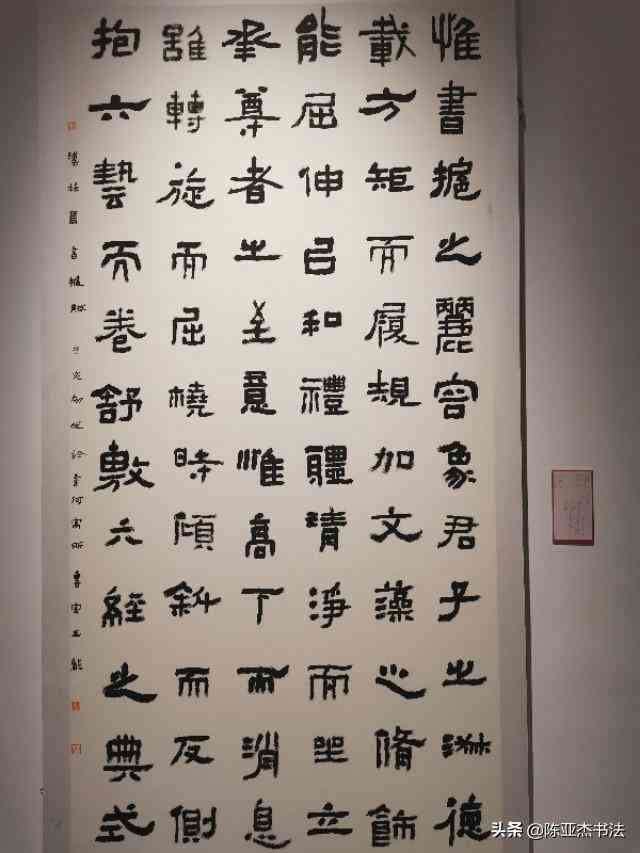 惟書之麗容象君子之淑德
載方矩而履規加文藻之脩飾
能屈伸㠯和禮體清淨而坐立
承尊者之至意惟高下而消息
雖轉旋而屈橈時傾斜而反側
抱六藝而卷舒敷六經之典式
漢杜篤書賦
头条 @陈亚杰书法